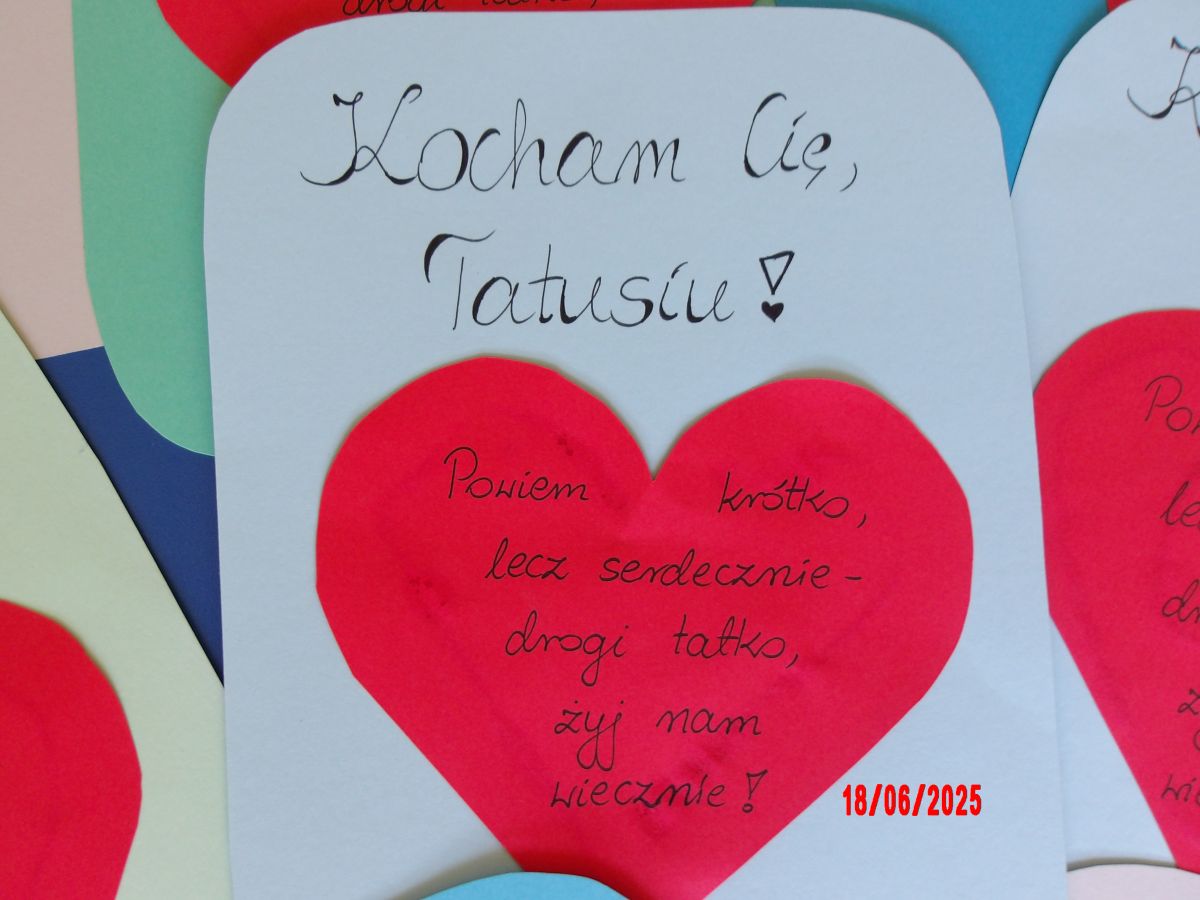 Kocham Cię,
Tatusiu!
Powiem krótko,
lecz serdecznie-
drogi tatko,
żyj nam
wiecznie!
18/06/2025